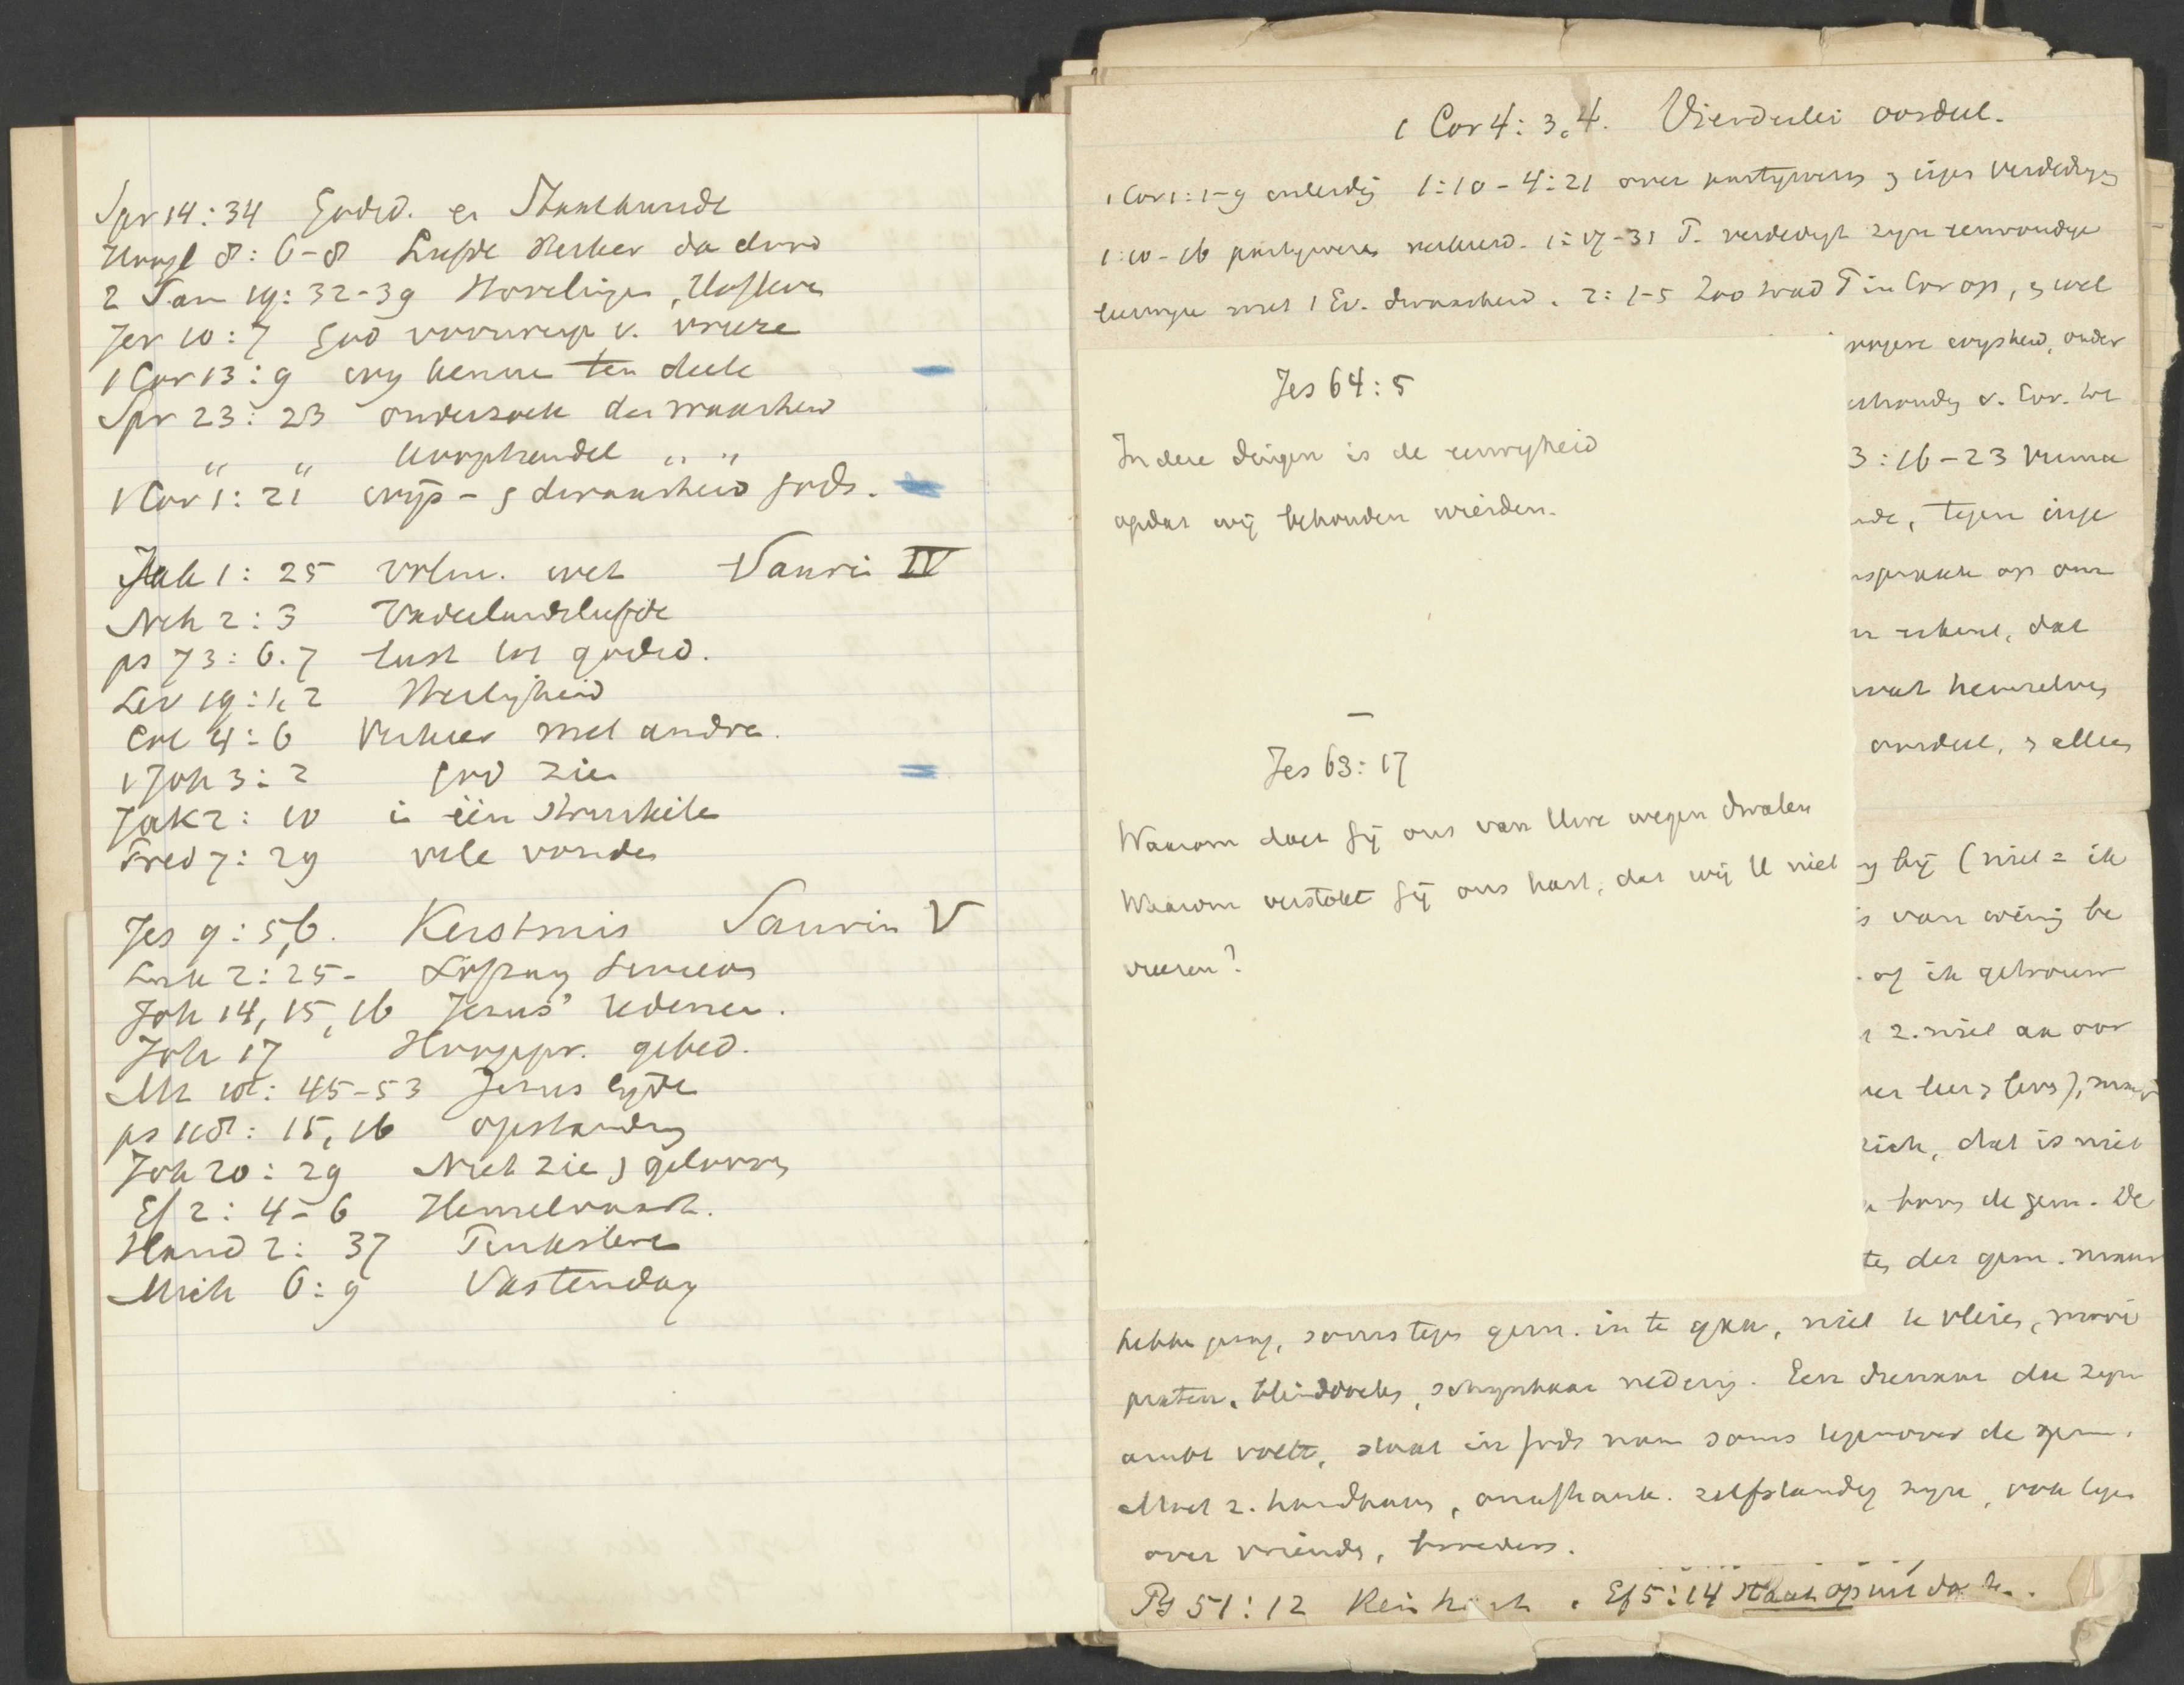 Spr 14:34 Godsd. en Staatkunde
Hoogl 8:6-8 Liefde sterker da dood
2 Sam 19:32-39 Hovelingen, Hofleve
Jer 10:7 God voorwerp v. vreeze
1 Cor 13:9 wy kenne ten deele
Spr 23:23 onderzoek der waarheid
" " koophandel " "
1 Cor 1:21 wijs- & dwaasheid Gods.
Jak 1:25 volm. wet Saurin IV
Neh 2:3 Vaderlandsliefde
ps 73:6.7 lust tot godsd.
Lev 19:1,2 Heiligheid
Col 4:6 Verkeer met andre.
1 Joh 3:2 God zien
Jak 2:10 in één struikele
Pred 7:29 vele vonden
Jes 9:5,6. Kerstmis Saurin V
Luk 2:25- Lofzang Simeons
Joh 14, 15, 16 Jezus' redenen.
Joh 17 Hoogepr. gebed.
Mt : 45-53 Jezus lijde
ps 118:15,16 opstanding
Joh 20:29 Niet zie & gelooven
Ef 2:4-6 Hemelvaart.
Hand 2:37 Pinksteren
Mich 6:9 Vastendag
1 Cor 4:3,4. Vierderlei oordeel.
1 Cor 1:1-9 inleidg 1:10-4:21 over partijwezen & eigen verdediging
1:10-16 partijwezen verkeerd. 1:17-31 P. verdedigt zijn eenvoudige
met 't Ev. dwaasheid. 2:1-5 Zoo trad P in Cor op, & wel
hoogere wijsheid, onder
v. Cor. we
3:16-23
tegen eige
op
dat
henzelven
oordeel, & allen
Jes 64:5
In deze dingen is de eeuwigheid
opdat wij behouden wierden.
—
Jes 63:17
Waarom doet Gij ons van Uwe wegen dwalen
Waarom verstokt Gij ons hart, dat wij U niet
vreezen?
bij (niet = ik
is van weinig be
of ik getrouw
z. niet aan oor
leer & leven),
zich, dat is niet
de gem. De
der gem. maar
hebbe, soms tegen gem. in te gaan, niet te vleien, mooi
praten, blinddoeken, schijnbaar nederig. Een dienaar die zijn
ambt voelt, staat in Gods naam soms tegenover de gem.
Moet z. handhaven, onafhank. zelfstandig zijn, ook tegen
over vrienden, broeders.
Ps 51:12 Rein hart. Ef 5:14 Staat op uit de